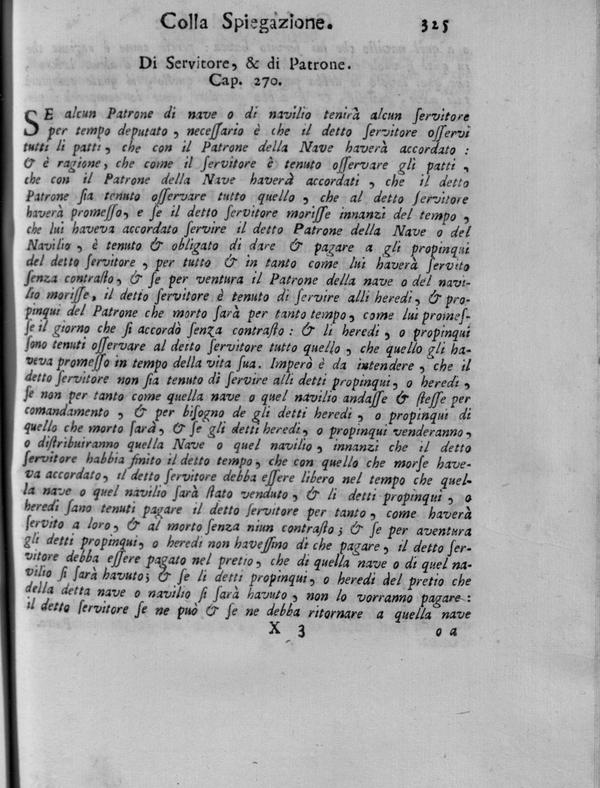 Colla Spiegazione. 325
Di Servitore, & di Patrone.
Cap. 270.
SE alcun Patrone di nave o di navilio tenirà alcun ſervitore
per tempo deputato, neceſſario è che il detto ſervitore oſſervi
tutti li patti, che con il Patrone della Nave haverà accordato:
& è ragione, che come il ſervitore è tenuto oſſervare gli patti,
che con il Patrone della Nave haverà accordati, che il detto
Patrone ſia tenuto oſſervare tutto quello, che al detto ſervitore
haverà promeſſo, e ſe il detto ſervitore moriſſe innanzi del tempo,
che lui haveva accordato ſervire il detto Patrone della Nave o del
Navilio, è tenuto & obligato di dare & pagare a gli propinqui
del detto ſervitore, per tutto & in tanto come lui haverà ſervito
ſenza contraſto, & ſe per ventura il Patrone della nave o del navi-
lio moriſſe, il detto ſervitore è tenuto di ſervire alli heredi, & pro-
pinqui del Patrone che morto ſarà per tanto tempo, come lui promeſ-
ſe il giorno che ſi accordò ſenza contraſto: & li heredi, o propinqui
ſono tenuti oſſervare al detto ſervitore tutto quello, che quello gli ha-
veva promeſſo in tempo della vita ſua. Imperò è da intendere, che il
detto ſervitore non ſia tenuto di ſervire alli detti propinqui, o heredi,
ſe non per tanto come quella nave o quel navilio andaſſe & ſteſſe per
comandamento, & per biſogno de gli detti heredi, o propinqui di
quello che morto ſarà, & ſe gli detti heredi, o propinqui venderanno,
o diſtribuiranno quella Nave o quel navilio, innanzi che il detto
ſervitore habbia finito il detto tempo, che con quello che morſe have-
va accordato, il detto ſervitore debba eſſere libero nel tempo che quel-
la nave o quel navilio ſarà ſtato venduto, & li detti propinqui, o
heredi ſano tenuti pagare il detto ſervitore per tanto, come haverà
ſervito a loro, & al morto ſenza niun contraſto; & ſe per aventura
gli detti propinqui, o heredi non haveſſino di che pagare, il detto ſer-
vitore debba eſſere pagato nel pretio, che di quella nave o di quel na-
vilio ſi ſarà havuto; & ſe li detti propinqui, o heredi del pretio che
della detta nave o navilio ſi ſarà havuto, non lo vorranno pagare:
il detto ſervitore ſe ne può & ſe ne debba ritornare a quella nave
X 3 o a